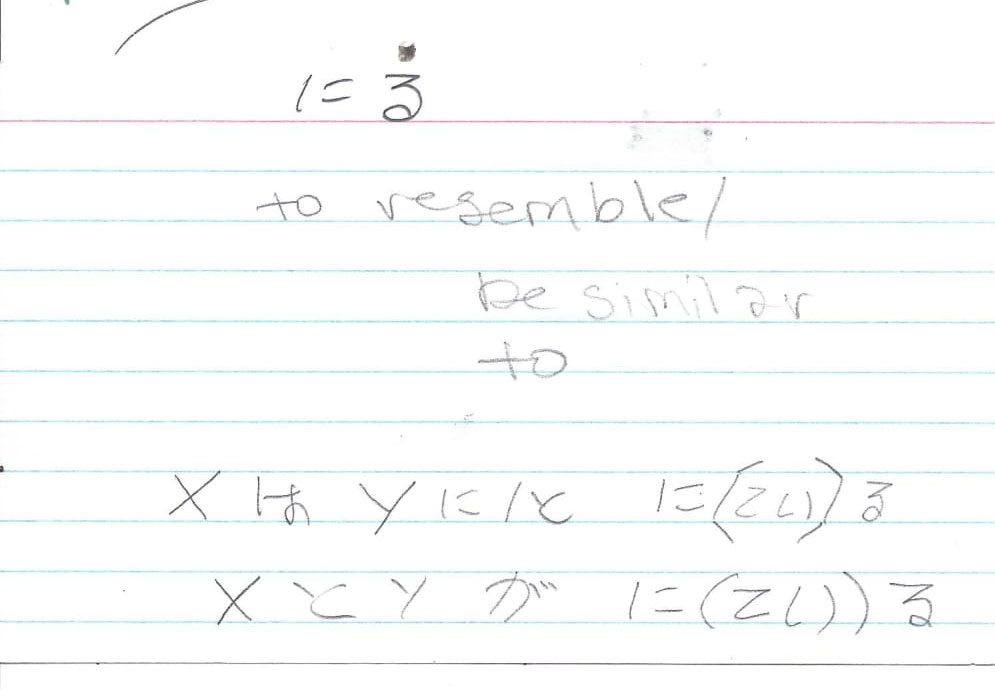 にる
to resemble/
be similar
to
X は Y に/と に(てい)る
X と Y が に(てい)る